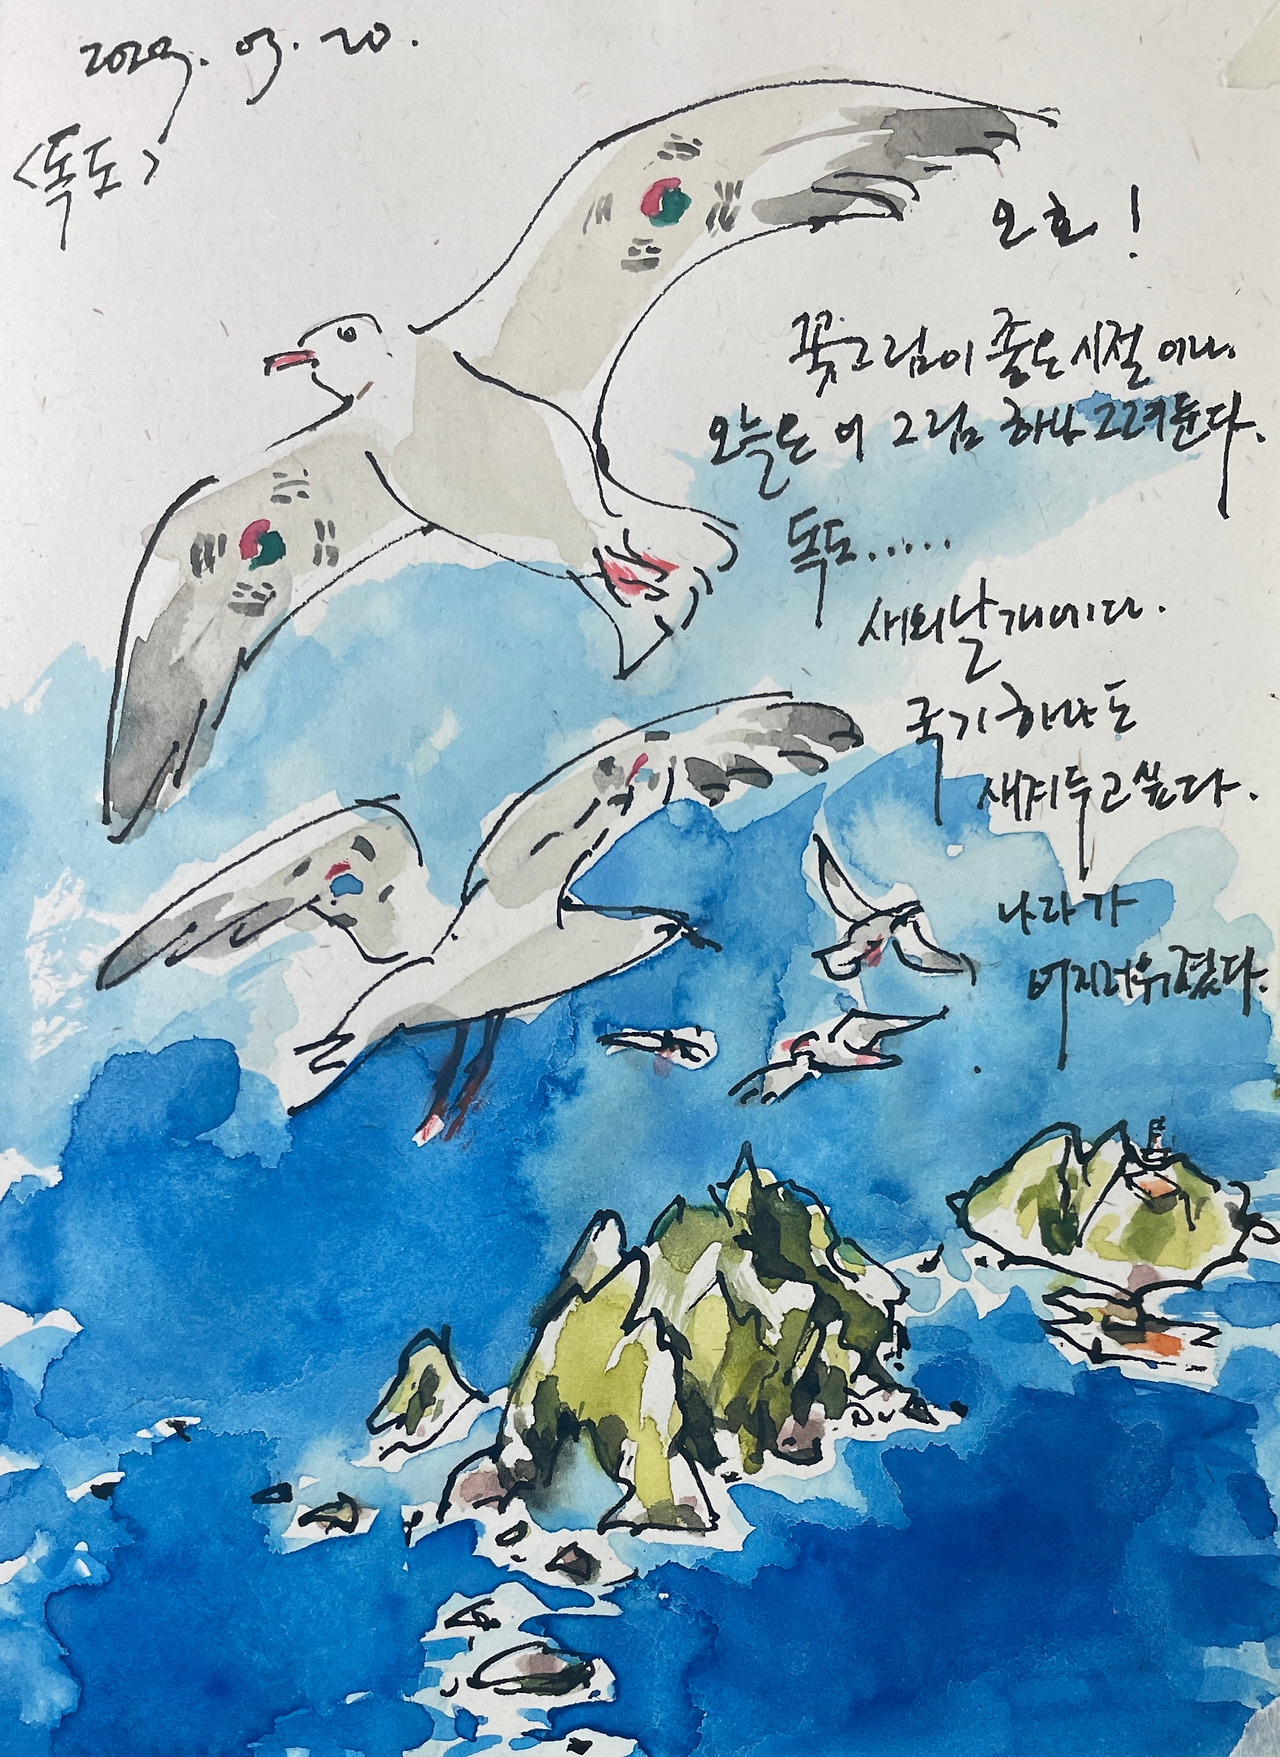 03. 20.
<독도>
오호!
꽃그림이 좋은 시절이다.
오늘은 이 그림 하나 그려둔다.
독도.....
새의 날개에다.
국기 하나도
새겨두고 싶다.
나라가
어지러워졌다.